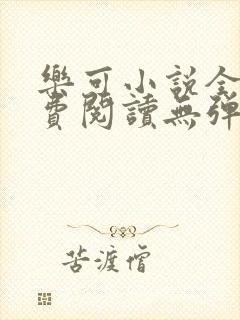 樂可小說全
費閱讀無彈
苦渡僧